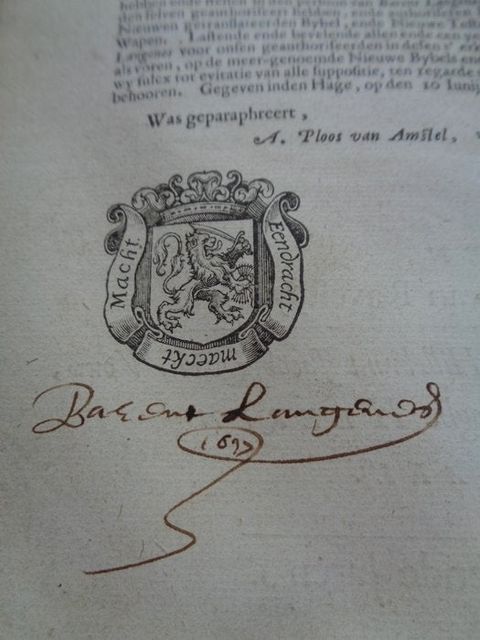 den selven geauthoriseert hebben, ende
Nieuwen getranslateerden Bybel, ende Nieuwe
Wapen. Lastende ende bevelende allen ende een
Langenes voor onsen geauthoriseerden in desen
als voren, op de meer-genoemde Nieuwe Bybels
wy sulcx tot evitatie van alle suppositie, ten regarde
behooren. Gegeven inden Hage, op den 10 Iunij
Was geparaphreert,
A. Ploos van Amstel,
Eendracht
maeckt
Macht
Barent Langenes